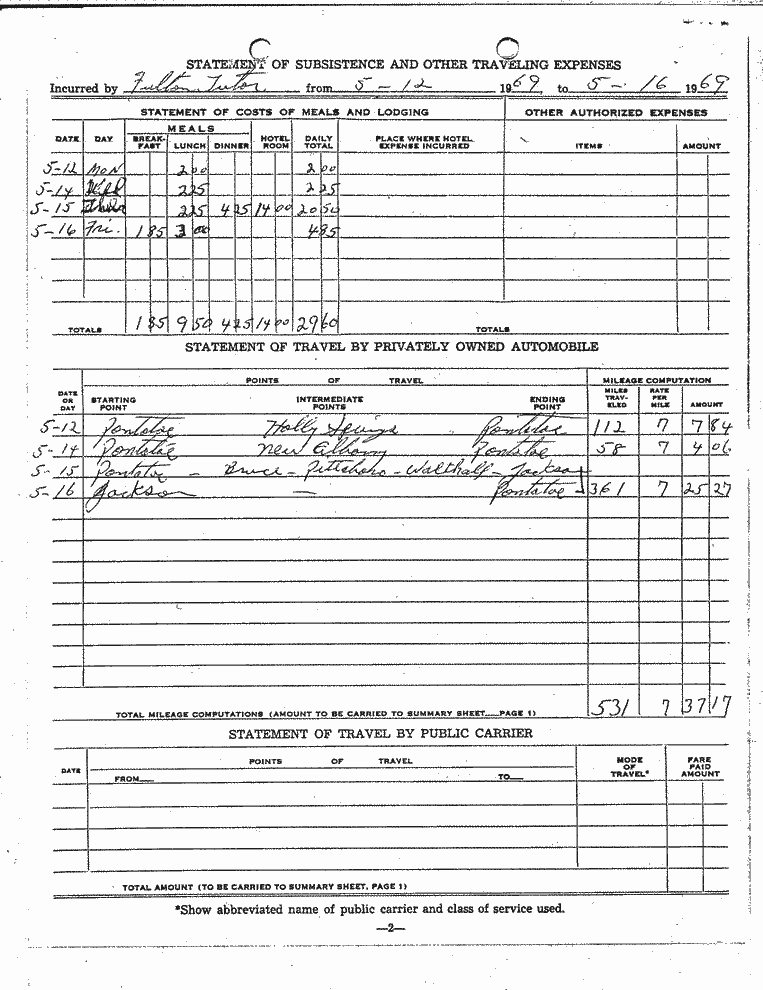 STATEMENT OF SUBSISTENCE AND OTHER TRAVELING EXPENSES
Incurred by Fulton Tutor from 5-12 1969 to 5-16 1969
STATEMENT OF COSTS OF MEALS AND LODGING OTHER AUTHORIZED EXPENSES
DATE DAY MEALS BREAK-FAST LUNCH DINNER HOTEL ROOM DAILY TOTAL PLACE WHERE HOTEL EXPENSE INCURRED ITEMS AMOUNT
5-12 Mon 2 00 2 00
5-14 Wed 2 25 2 25
5-15 Thurs 2 25 4 25 14 00 20 50
5-16 Fri. 1 85 3 00 4 85
TOTALS 1 85 9 50 4 25 14 00 29 60 TOTALS
STATEMENT OF TRAVEL BY PRIVATELY OWNED AUTOMOBILE
POINTS OF TRAVEL MILEAGE COMPUTATION
DATE OR DAY STARTING POINT INTERMEDIATE POINTS ENDING POINT MILES TRAV-ELED RATE PER MILE AMOUNT
5-12 Pontotoc Holly Springs Pontotoc 112 7 7 84
5-14 Pontotoc New Albany Pontotoc 58 7 4 06
5-15 Pontotoc - Bruce - Pittsboro - Walthall - Jackson
5-16 Jackson — Pontotoc - 361 7 25 27
TOTAL MILEAGE COMPUTATIONS (AMOUNT TO BE CARRIED TO SUMMARY SHEET__PAGE 1) 531 7 37 17
STATEMENT OF TRAVEL BY PUBLIC CARRIER
DATE POINTS OF TRAVEL MODE OF TRAVEL* FARE PAID AMOUNT
FROM__ TO__
TOTAL AMOUNT (TO BE CARRIED TO SUMMARY SHEET, PAGE 1)
*Show abbreviated name of public carrier and class of service used.
—2—